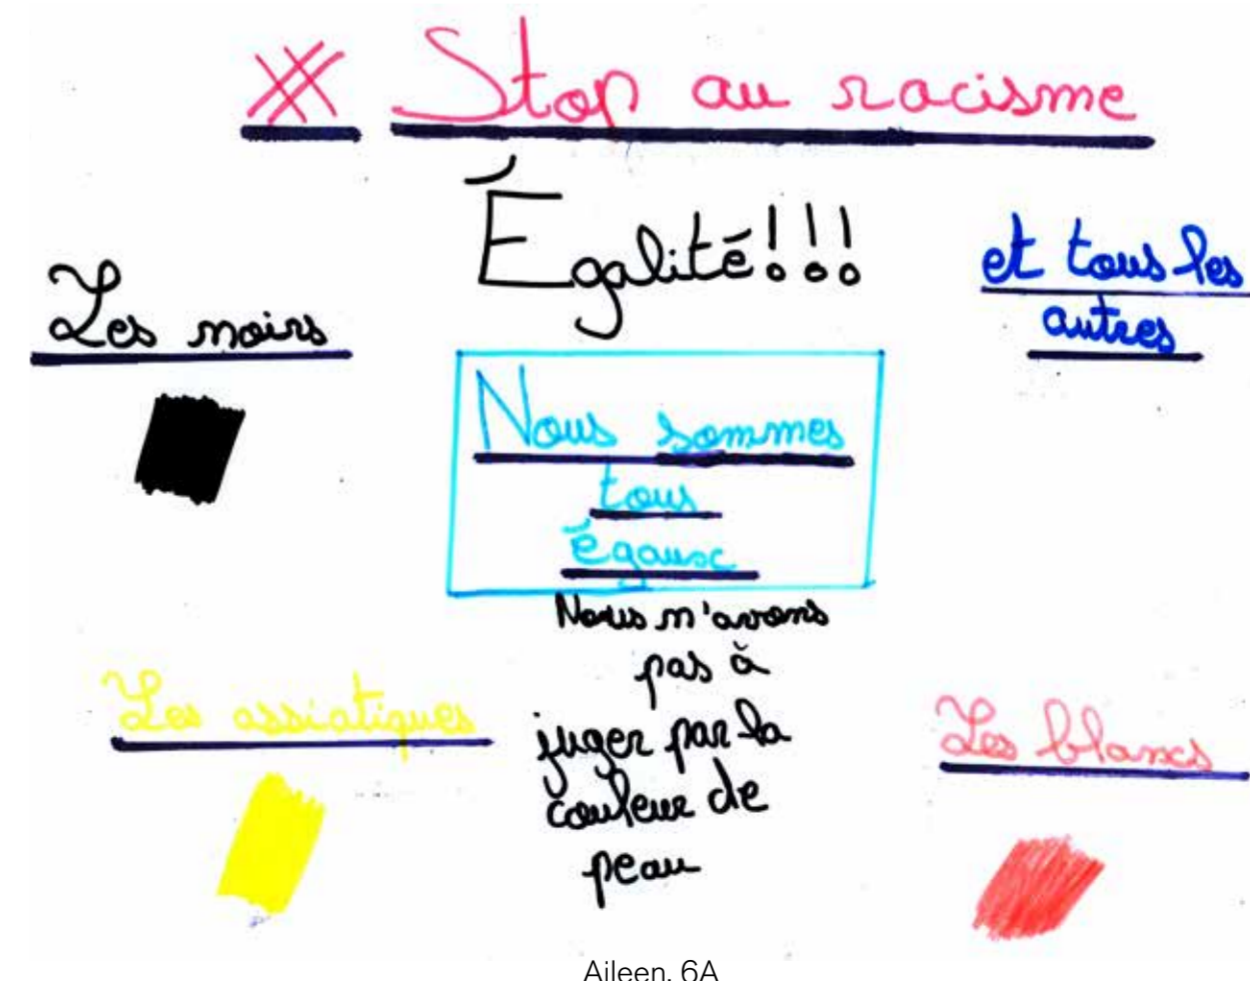 # Stop au racisme
Égalité!!!
et tous les
autres
Les noirs
Nous sommes
tous
égaux
Nous n'avons
pas à
juger par la
couleur de
peau
Les assiatiques
Les blancs
Aileen, 6A